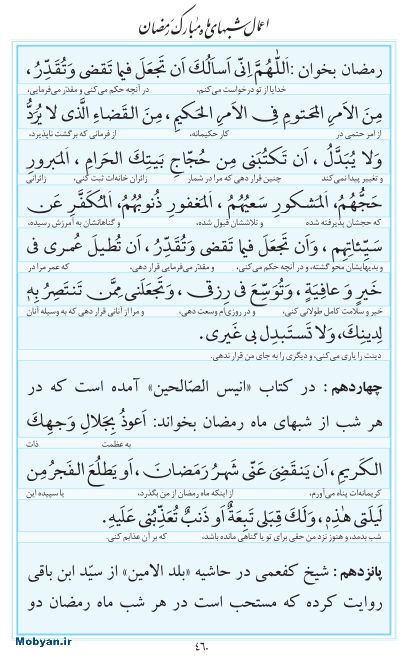 اعمال شبهای ماه مبارک رمضان
رمضان بخوان: اَللّهُمَّ اِنّی اَساَلُکَ اَن تَجعَلَ فیما تَقضی وَتُقَدِّرُ،
خدایا از تو درخواست می‌کنم، در آنچه حکم می‌کنی و مقدّر می‌فرمایی،
مِنَ الاَمرِ المَحتومِ فِی الاَمرِ الحَکیمِ، مِنَ القَضاءِ الَّذی لا یُرَدُّ
از امر حتمی در کار حکیمانه، از فرمانی که برگشت ناپذیرد،
وَلا یُبَدَّلُ، اَن تَکتُبَنی مِن حُجّاجِ بَیتِکَ الحَرامِ، اَلمَبرورِ
و تغییر پیدا نمی‌کند چنین قرار دهی که مرا در شمار زائران خانه‌ات ثبت کنی، زائرانی
حَجُّهُم، اَلمَشکورِ سَعیُهُم، اَلمَغفورِ ذُنوبُهُم، اَلمُکَفَّرِ عَن
که حجشان پذیرفته شده و تلاششان قبول شده، و گناهانشان به آمرزش رسیده،
سَیِّئاتِهِم، وَاَن تَجعَلَ فیما تَقضی وَتُقَدِّرُ، اَن تُطیلَ عُمری فی
و بدیهایشان محو گشته، و در آنچه حکم می‌کنی، و مقدّر می‌فرمایی قرار دهی، که عمر مرا در
خَیرٍ وَ عافِیَةٍ، وَتُوَسِّعَ فی رِزقی، وَتَجعَلَنی مِمَّن تَنتَصِرُ بِهِ
خیر و سلامت کامل طولانی کنی، و در روزی‌ام وسعت دهی، و مرا از آنانی قرار دهی که به وسیله آنان
لِدینِکَ، وَلا تَستَبدِل بی غَیری.
دینت را یاری می‌کنی، و دیگری را به جای من قرار ندهی.
چهاردهم: در کتاب «انیس الصّالحین» آمده است که در
هر شب از شبهای ماه رمضان بخواند: اَعوذُ بِجَلالِ وَجهِکَ
به عظمت ذات
الکَریمِ، اَن یَنقَضِیَ عَنّی شَهرُ رَمَضانَ، اَو یَطلُعَ الفَجرُ مِن
کریمانه‌ات پناه می‌آورم، از اینکه ماه رمضان از من بگذرد، یا سپیده این
لَیلَتی هذِهِ، وَلَکَ قِبَلی تَبِعَةٌ اَو ذَنبٌ تُعَذِّبُنی عَلَیهِ.
شب بدمد، و هنوز نزد من حقی برای تو یا گناهی مانده باشد، که بر آن عذابم کنی.
پانزدهم: شیخ کفعمی در حاشیه «بلد الامین» از سیّد ابن باقی
روایت کرده که مستحب است در هر شب ماه رمضان دو
٤٦٠
Mobyan.ir